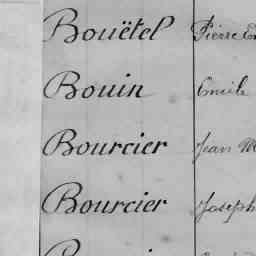 Bouëtel Pierre
Bouin Emile
Bourcier Jean M
Bourcier Joseph